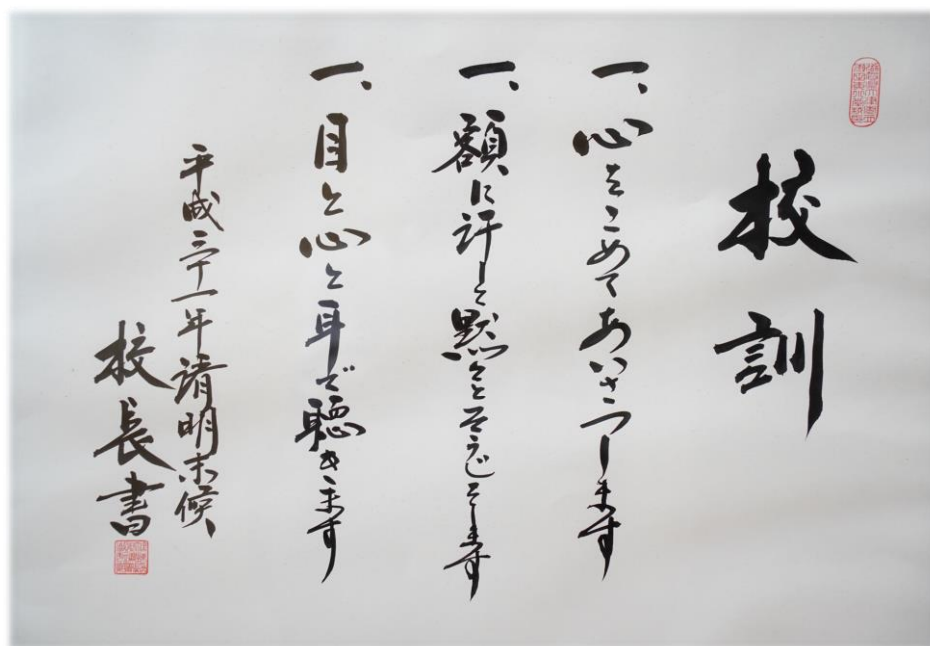 校訓
一、心をこめてあいさつします
一、額に汗して黙々とそうじをします
一、目と心と耳で聴きます
平成三十一年清明末候
校長書